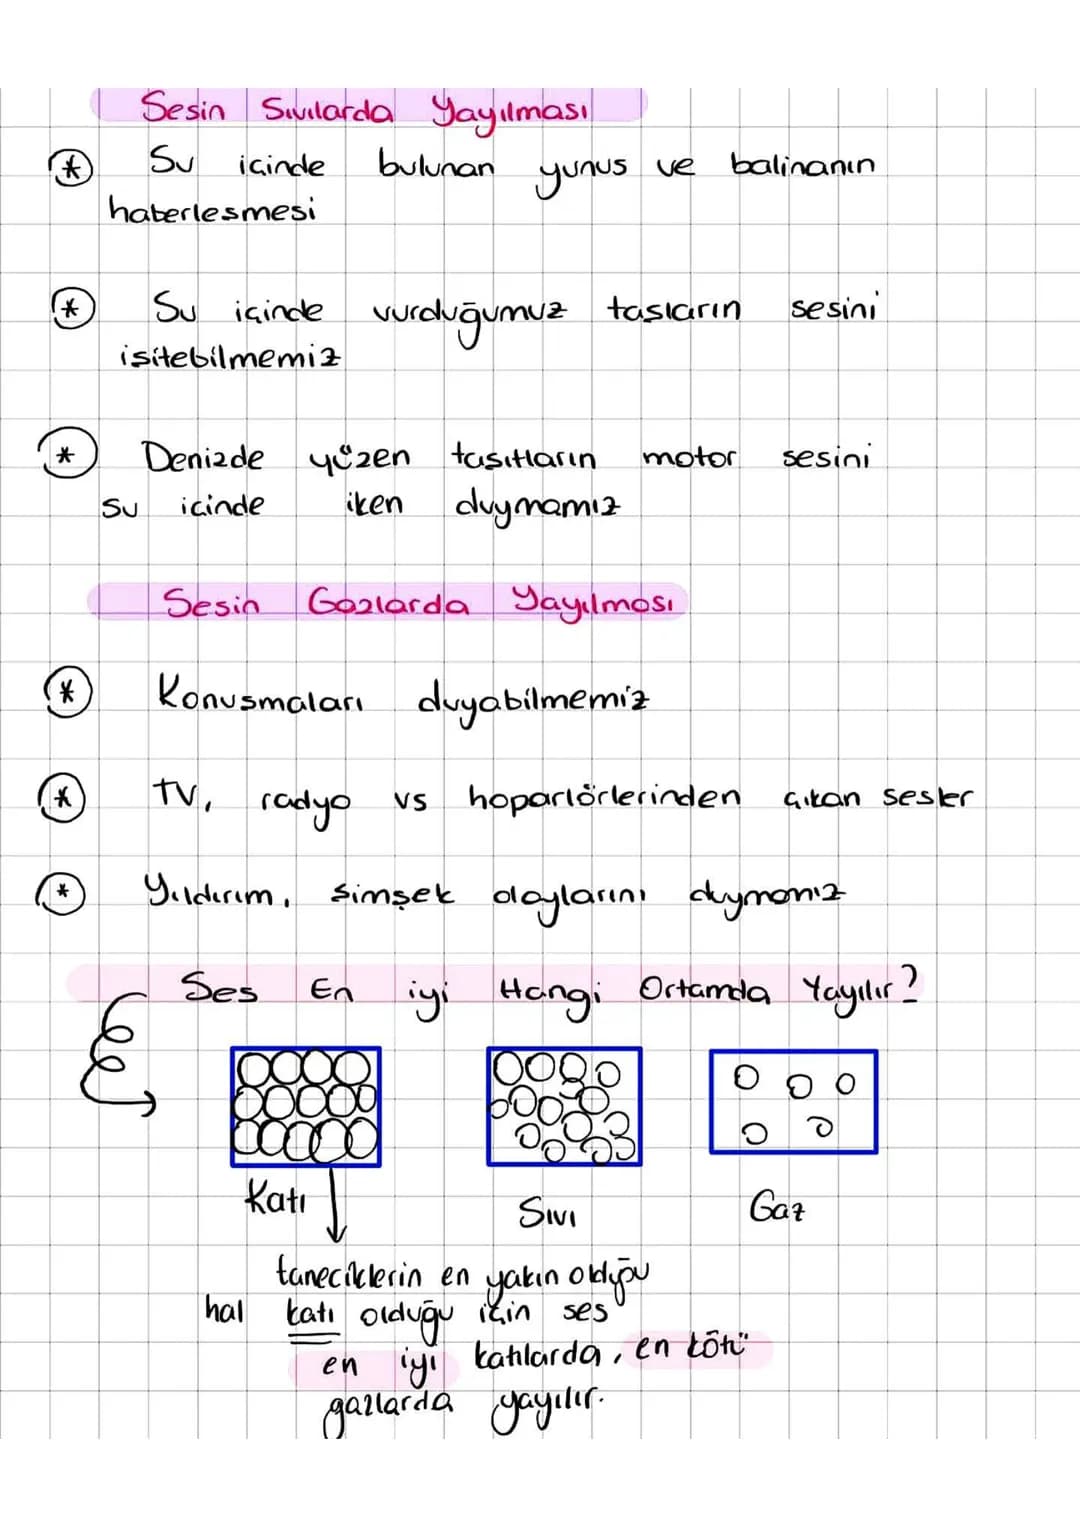 Sesin Sıvılarda Yayılması
* Su içinde bulunan yunus ve balinanın
haberlesmesi
* Su içinde vurduğumuz tasların sesini
isitebilmemiz
* Denizde yüzen tasıtların motor sesini
su icinde iken duymamız
Sesin Gazlarda Yayılması
* Konusmaları duyabilmemiz
* TV, radyo vs hoparlörlerinden çıkan sesler
* Yıldırım, simşek olaylarını duymamız
Ses En iyi Hangi Ortamda Yayılır?
Katı Sıvı Gaz
taneciklerin en yakın olduğu
hal katı olduğu için ses
en iyi katılarda, en kötü
gazlarda yayılır.